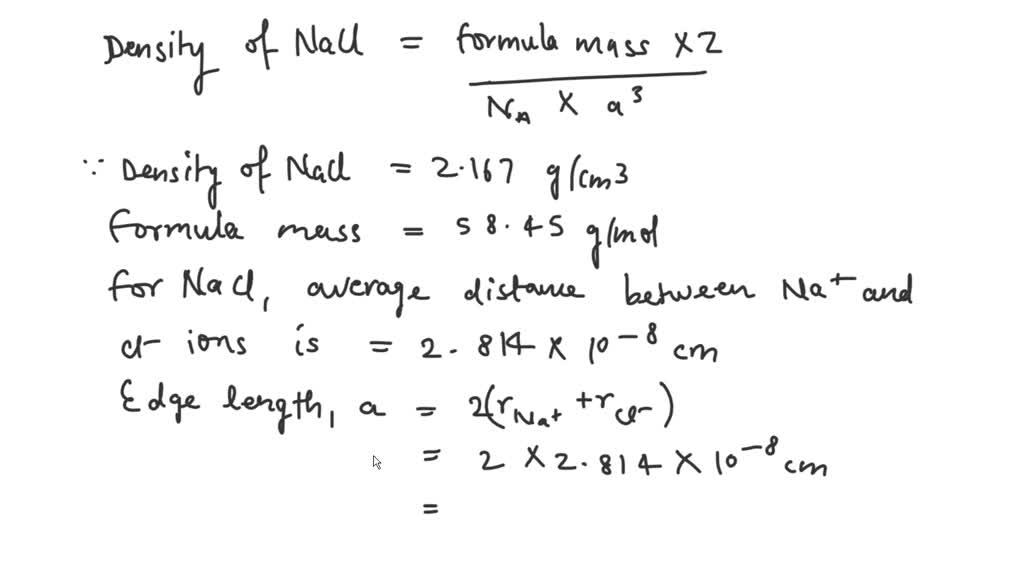 Density of NaCl = formula mass X Z
NA X a³
∵ Density of NaCl = 2.167 g/cm3
formula mass = 58.45 g/mol
for NaCl, average distance between Na+ and
cl- ions is = 2.814 X 10-8 cm
Edge length, a = 2(rNa+ + rCl-)
= 2 X 2.814 X 10-8 cm
=